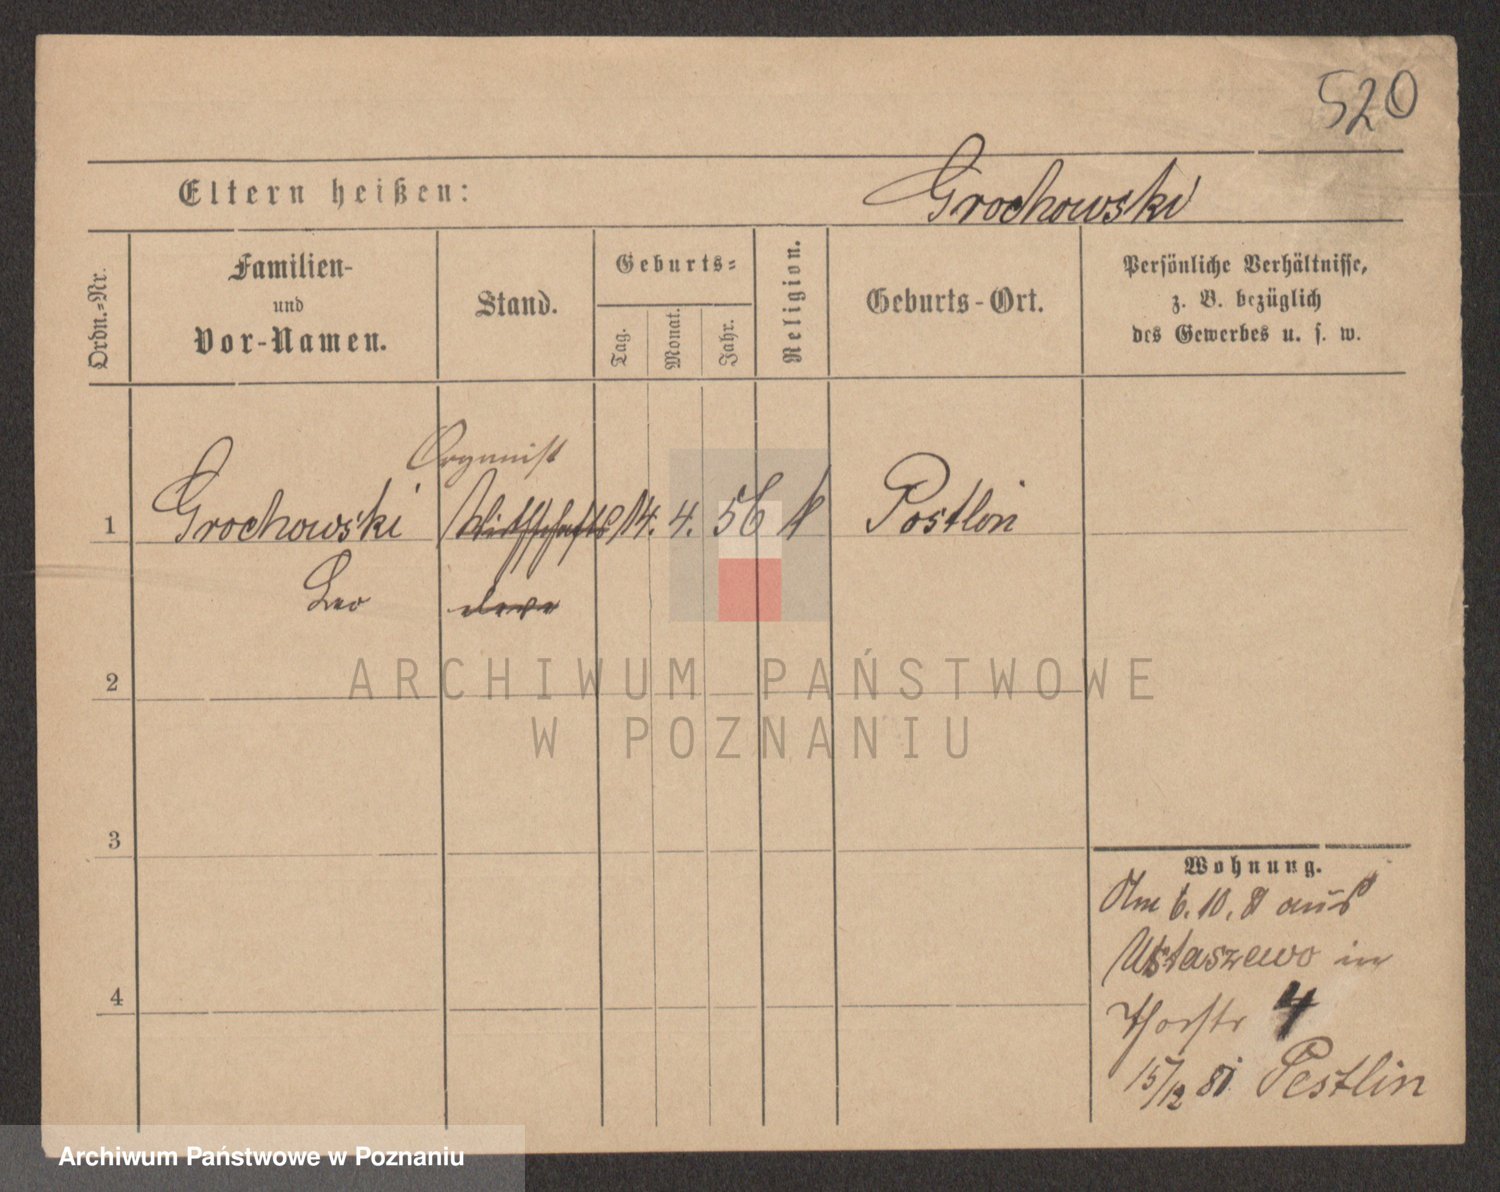 520
Eltern heißen: Grochowski
Ordn.-Nr.
Familien-
und
Vor-Namen.
Stand.
Geburts-
Tag.
Monat.
Jahr.
Religion.
Geburts-Ort.
Persönliche Verhältnisse,
z. B. bezüglich
des Gewerbes u. s. w.
Organist
1 Grochowski Wirthschafts 14. 4. 56 k Postlin
Leo eleve
2
3
4
Wohnung.
Am 6. 10. 81 aus
Ustaszewo in
Thorstr 4
15/12 81 Pestlin
ARCHIWUM PAŃSTWOWE
W POZNANIU
Archiwum Państwowe w Poznaniu